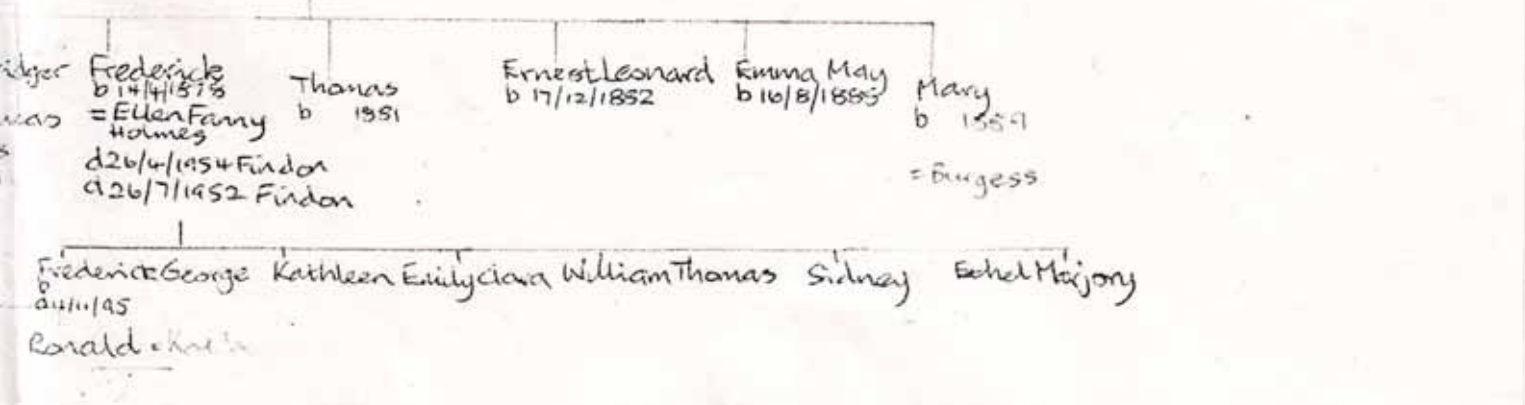 Frederick
b 14/4/1878
= Ellen Fanny
Holmes
d 26/4/1954 Findon
d 26/7/1952 Findon
Thomas
b 1881
Ernest Leonard
b 17/12/1882
Emma May
b 16/8/1885
Mary
b
= Burgess
Frederick George
b
d 11/11/95
Ronald
Kathleen
Emily Clara
William Thomas
Sidney
Ethel Marjory